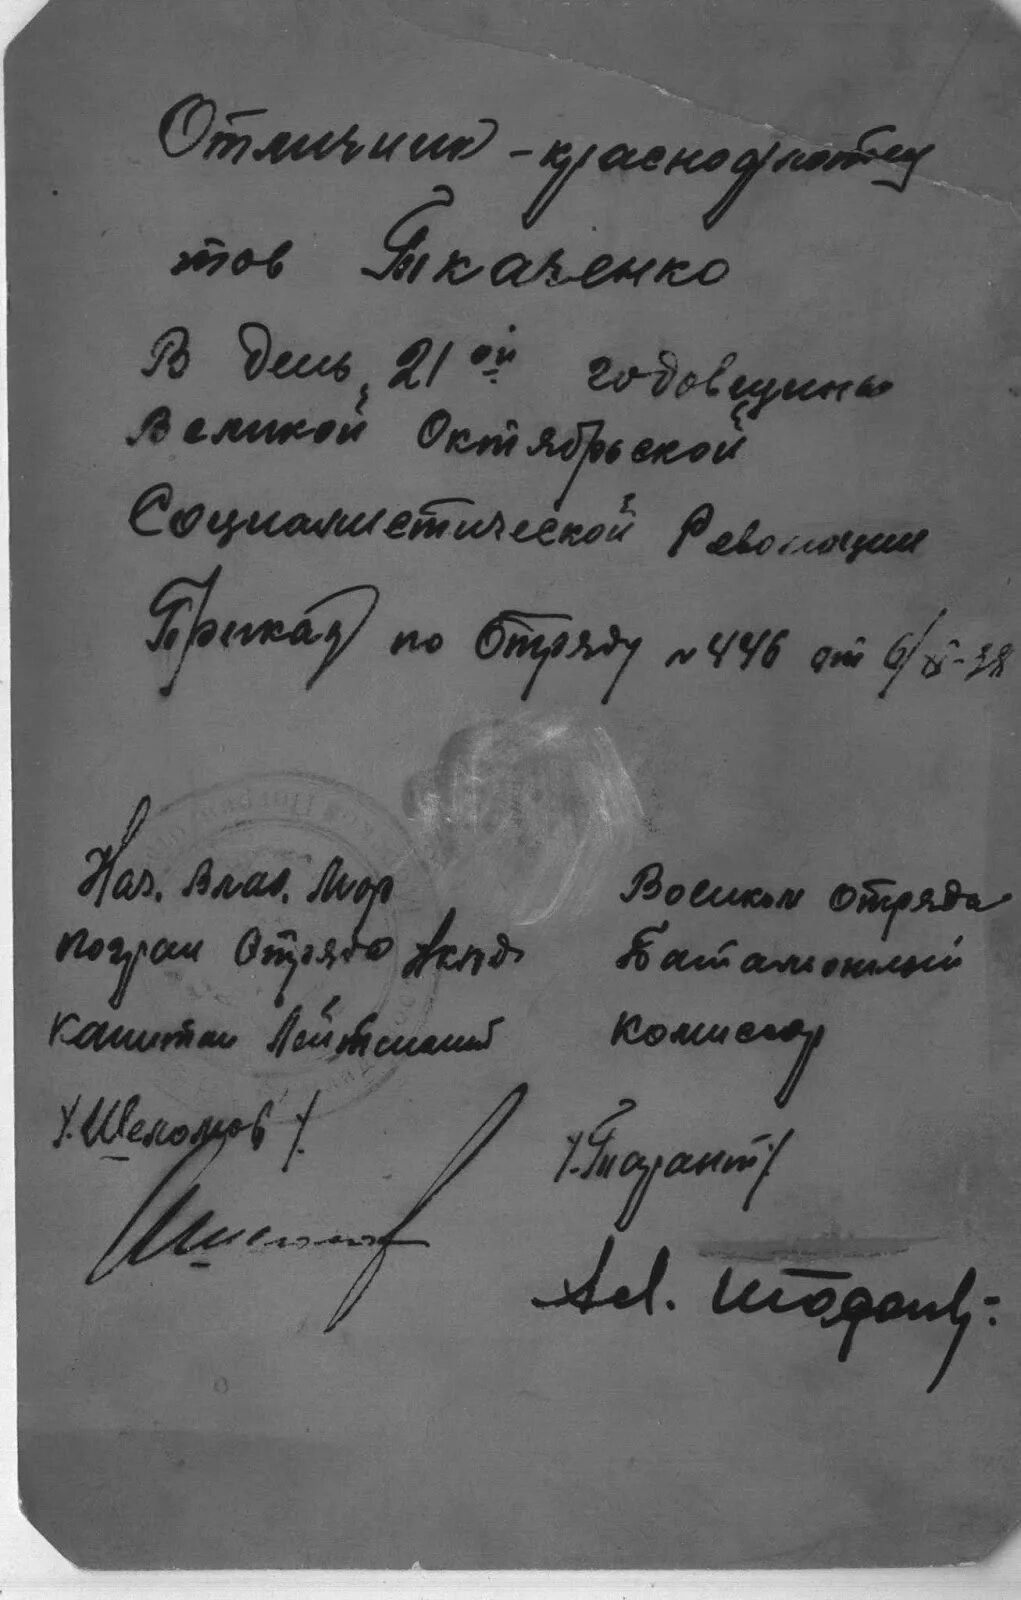 Отличник - краснофлотец
тов Ткаченко
В день 21ой годовщины
Великой Октябрьской
Социалистической Революции
Приказ по Отряду № 446 от 6/XI-38
Нач. Влад. Мор
погран Отряда НКВД
Капитан Лейтенант
/. Шеломцов /.
Военком отряда
Баталионный
комиссар
/. Тарант /